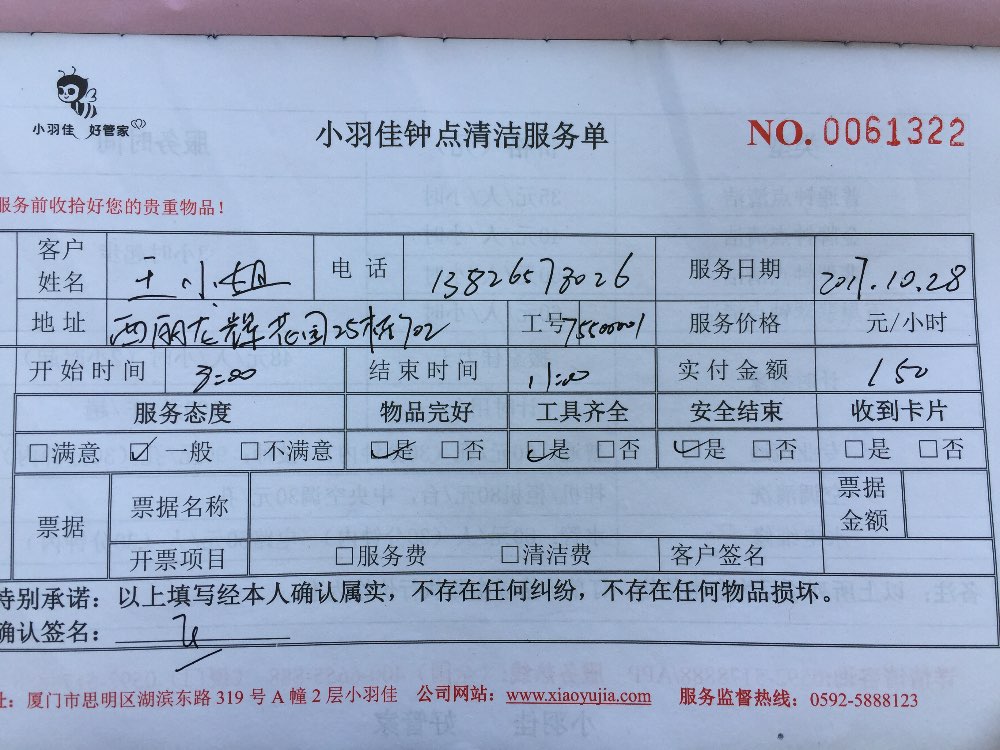 小羽佳 好管家
小羽佳钟点清洁服务单
NO. 0061322
服务前收拾好您的贵重物品!
客户姓名 王小姐 电话 13826573026 服务日期 2017.10.28
地址 西丽龙辉花园25栋702 工号 75500001 服务价格 元/小时
开始时间 3:00 结束时间 11:00 实付金额 150
服务态度 物品完好 工具齐全 安全结束 收到卡片
□满意 ☑一般 □不满意 ☑是 □否 ☑是 □否 ☑是 □否 □是 □否
票据 票据名称 票据金额
开票项目 □服务费 □清洁费 客户签名
特别承诺：以上填写经本人确认属实，不存在任何纠纷，不存在任何物品损坏。
确认签名：
址：厦门市思明区湖滨东路 319 号 A 幢 2 层小羽佳 公司网站：www.xiaoyujia.com 服务监督热线：0592-5888123